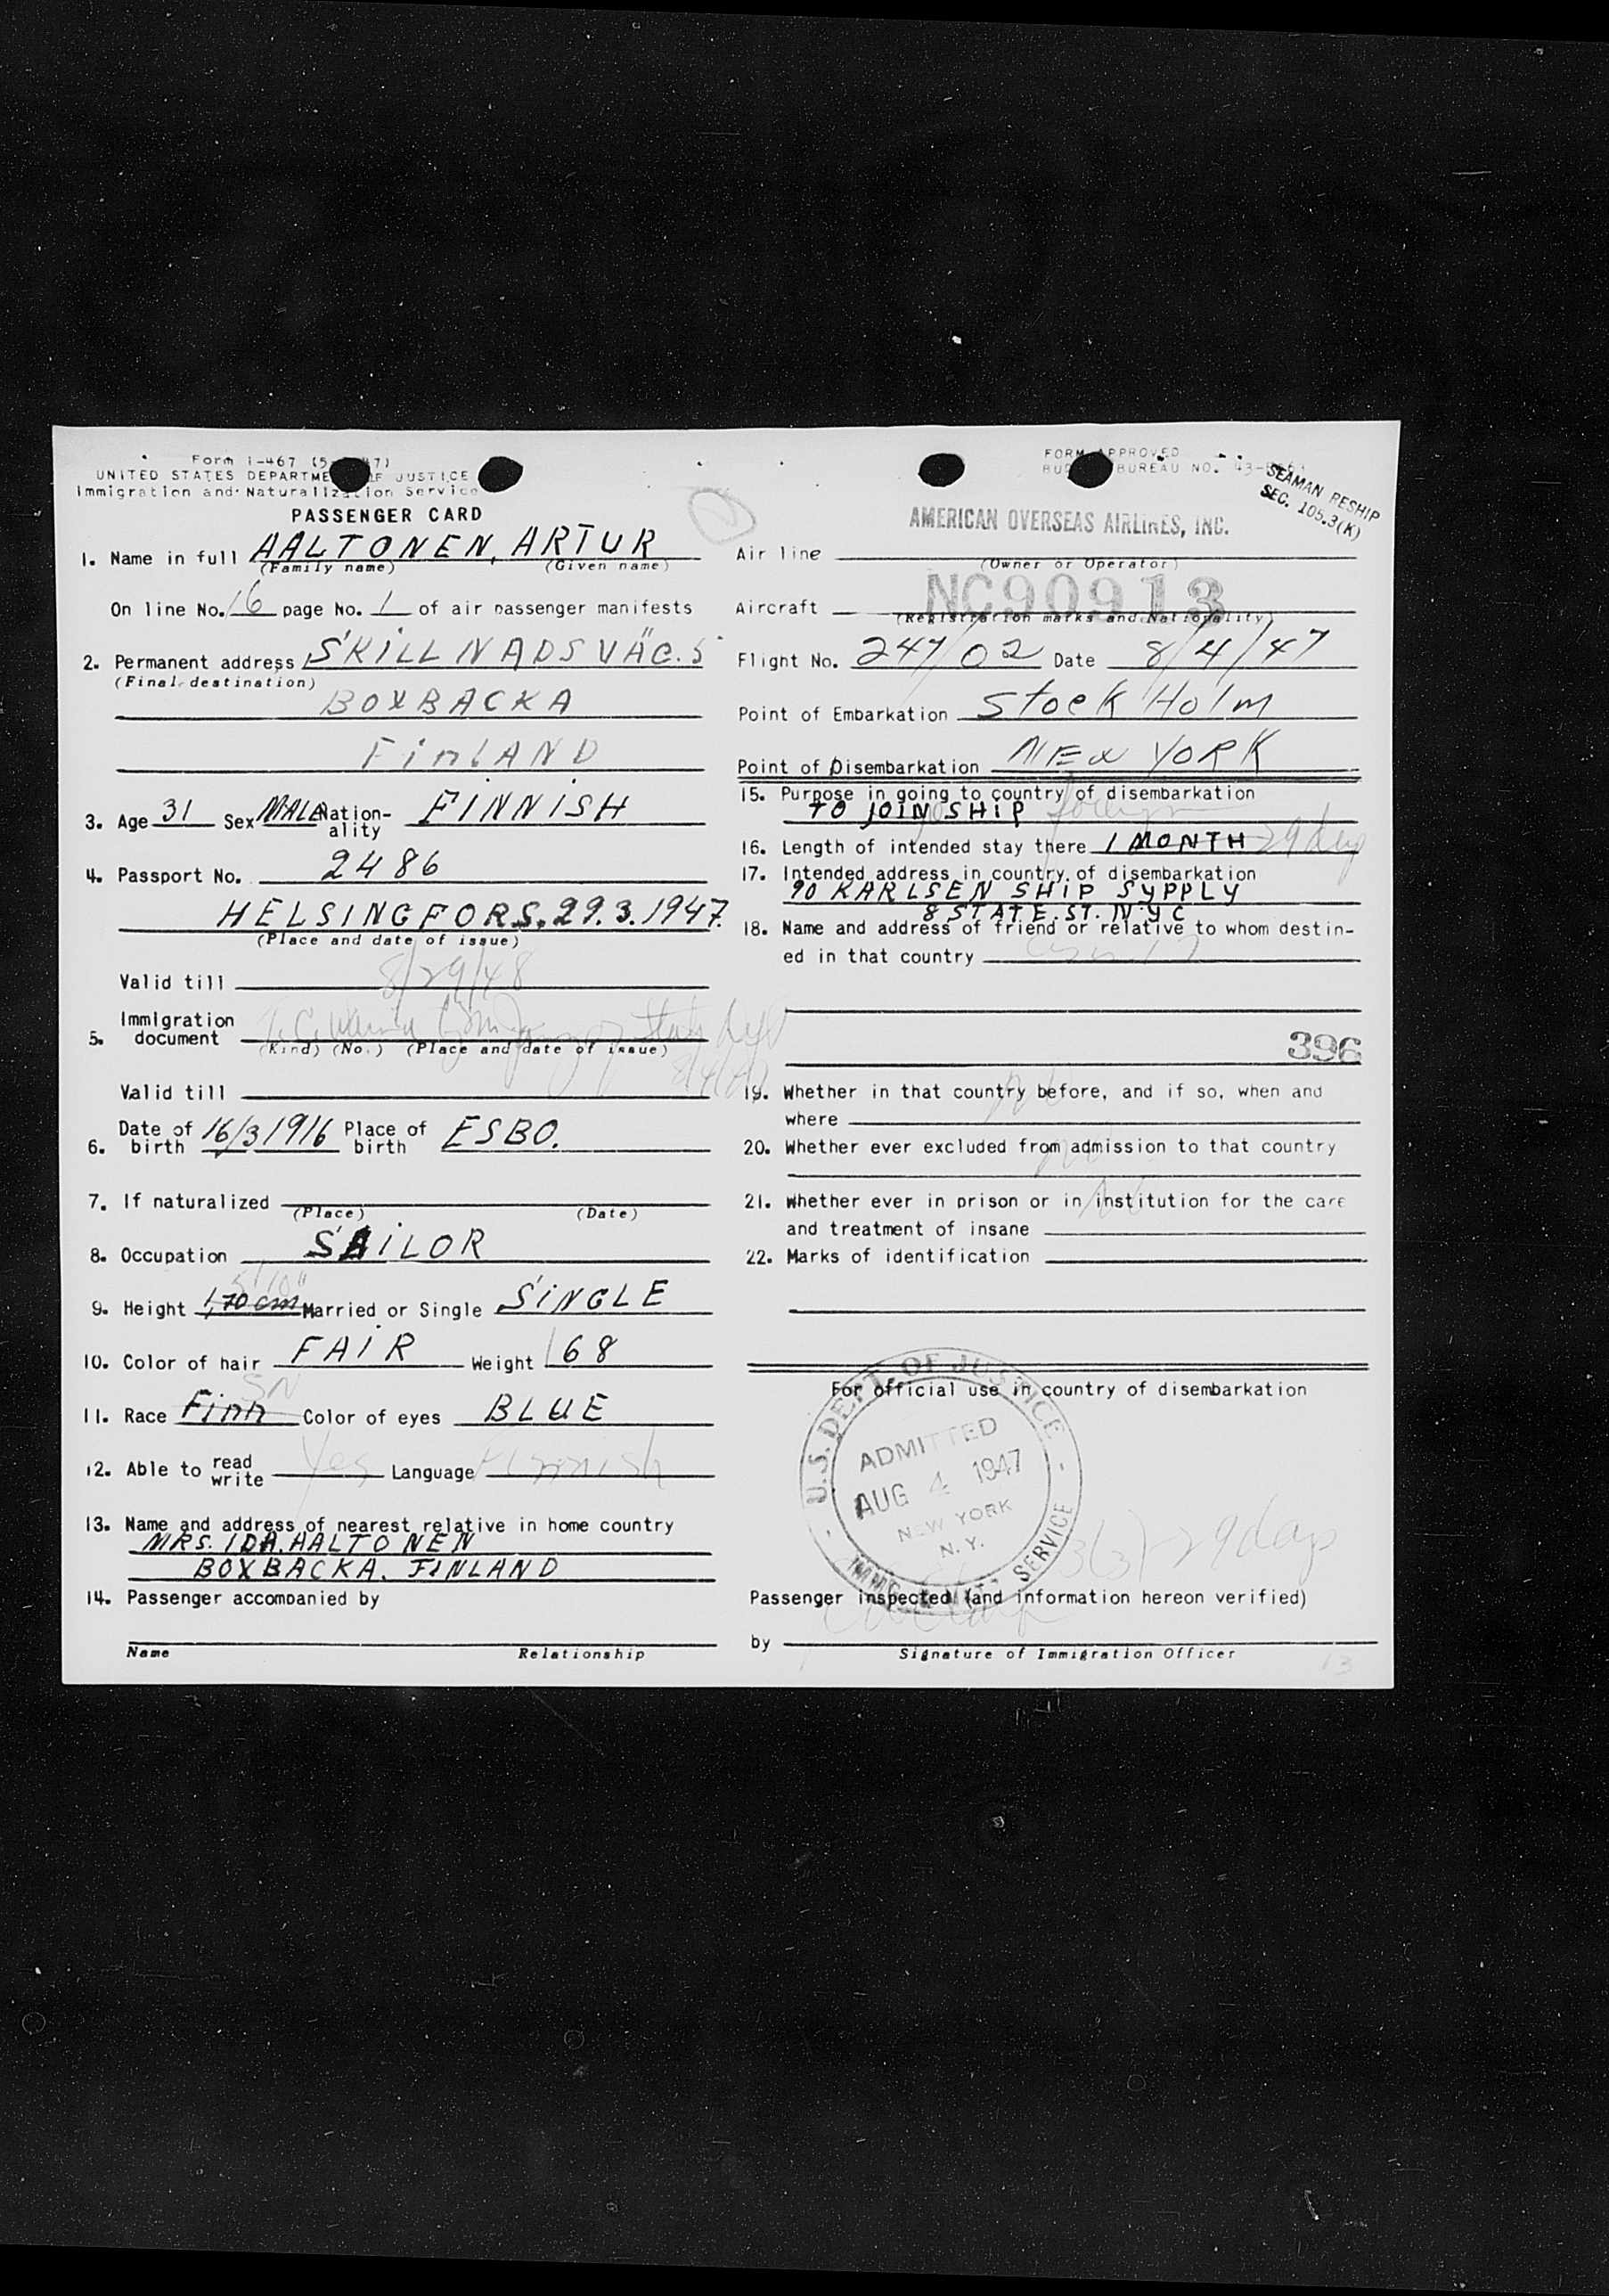 Form I-467 (5- 47)
UNITED STATES DEPARTMENT OF JUSTICE
Immigration and Naturalization Service
PASSENGER CARD
1. Name in full AALTONEN, ARTUR
(Family name) (Given name)
On line No. 16 page No. 1 of air passenger manifests
2. Permanent address SKILLNADSVÄG. 5
(Final destination)
BOXBACKA
FinlAND
3. Age 31 Sex MALE Nation-ality FINNISH
4. Passport No. 2486
HELSINGFORS. 29.3.1947.
(Place and date of issue)
Valid till 8/29/48
5. Immigration document
(Kind) (No.) (Place and date of issue)
Valid till
6. Date of birth 16/3 1916 Place of birth ESBO.
7. If naturalized
(Place) (Date)
8. Occupation SAILOR
5'10"
9. Height 1,70 cm Married or Single SiNGLE
10. Color of hair FAIR Weight 168
SN
11. Race Finn Color of eyes BLUE
12. Able to read write Yes Language Finnish
13. Name and address of nearest relative in home country
MRS. IDA. AALTONEN
BOXBACKA. FINLAND
14. Passenger accompanied by
Name Relationship
FORM APPROVED
BUDGET BUREAU NO. 43-
SEAMAN RESHIP
SEC. 105.3(K)
AMERICAN OVERSEAS AIRLINES, INC.
Air line
(Owner or Operator)
Aircraft NC90913
(Registration marks and Nationality)
Flight No. 247/02 Date 8/4/47
Point of Embarkation StockHolm
Point of Disembarkation NEw YORK
15. Purpose in going to country of disembarkation
TO JOIN SHiP
16. Length of intended stay there 1 MONTH 29 days
17. Intended address in country of disembarkation
90 KARLSEN SHiP SYPPLY
8 STATE. ST. N.Y C
18. Name and address of friend or relative to whom destin-
ed in that country
396
19. Whether in that country before, and if so, when and
where no
20. Whether ever excluded from admission to that country
no
21. Whether ever in prison or in institution for the care
and treatment of insane No
22. Marks of identification
For official use in country of disembarkation
U.S. DEPT. OF JUSTICE
ADMITTED
AUG 4 1947
NEW YORK
N.Y.
IMMIG. & NAT. SERVICE
3(3)-29 days
Passenger inspected (and information hereon verified)
by
Signature of Immigration Officer
13